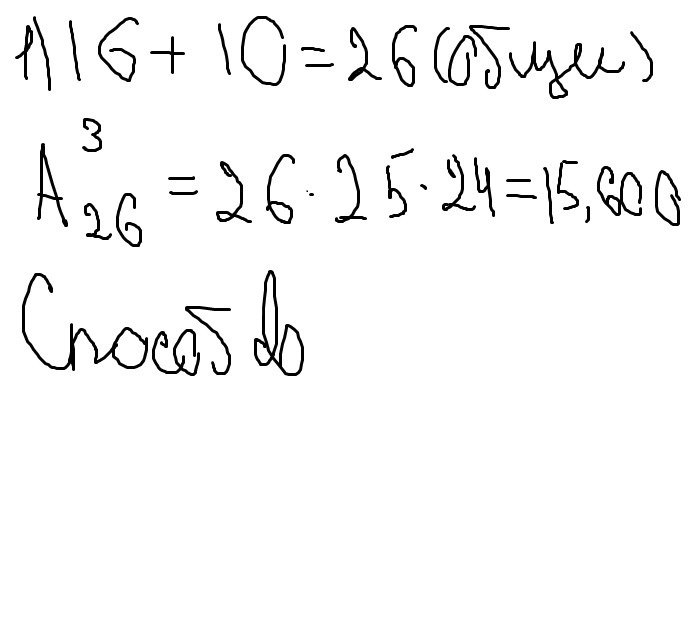 1) 16 + 10 = 26 (общи)
A³₂₆ = 26 · 25 · 24 = 15,600
Способ do